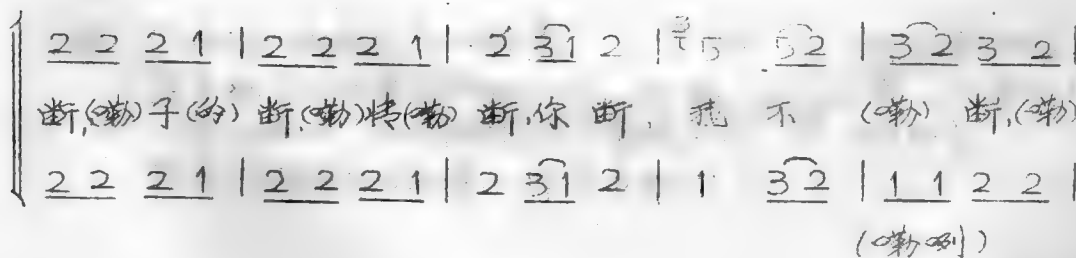 2 2 2 1 | 2 2 2 1 | 2 3 1 2 | 5 5 2 | 3 2 3 2 |
断,(嘞)子(的) 断,(嘞)情(嘞) 断,你 断, 我 不 (嘞) 断,(嘞)
2 2 2 1 | 2 2 2 1 | 2 3 1 2 | 1 3 2 | 1 1 2 2 |
(嘞咧)